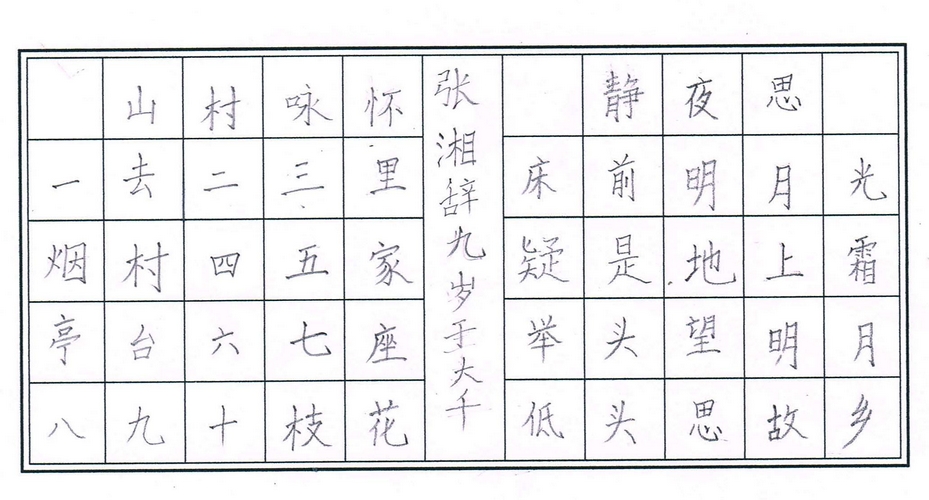 山村咏怀
一去二三里
烟村四五家
亭台六七座
八九十枝花
张湘辞九岁于大千
静夜思
床前明月光
疑是地上霜
举头望明月
低头思故乡